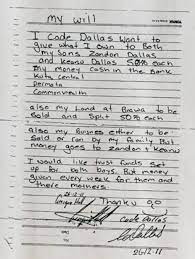 my will
I Cade Dallas Want to
give what I own to Both
my Sons Zandon Dallas
and Keanu Dallas 50% each
my money cash in the Bank
Kuta central
Permata
Commonwealth
also my Land at Brawa to be
Sold and Split 50% each
also my Busines either to be
Sold or ran by my family But
money goes to zandon & keanu
I would like trust funds set
up for both boys. But money
given every week for them and
there mothers.
28-12-11 Thankyou
Cade Dallas
28-12-11